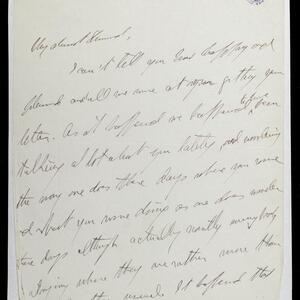 My dearest
I can't tell you how happy and
and all we were at getting your
letter. As it happened we happened been
talking a lot about you lately, and wondering
the way one does these days where you were
& what you were doing as one does wonder
these days although actually nearly everybody
where they are rather more than
usual. It happened that